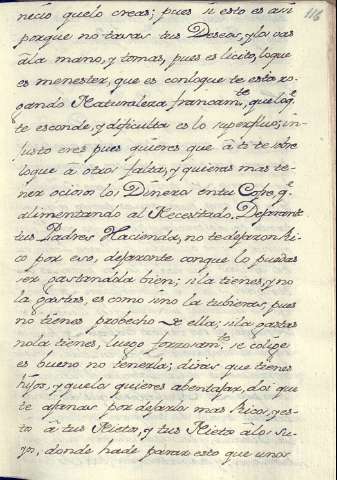 116
necio quelo creas; pues si esto es asi
porque no tasas tus Deseos, y los vas
â la mano, y tomas, pues es licito, loque
es menester, que es conloque te esta ro-
gando Naturaleza francam.te, que loq.e
te esconde, y dificulta es lo superfluo; in-
justo eres pues quieres que â ti te sobre
loque â otros falta, y quieras mas te-
ner ociosos los Dineros entu Cofre, q.e
alimentando al Necesitado. Dejaronte
tus Padres Hacienda, no te dejaron Ri-
co por eso, dejaronte conque lo puedas
ser gastandola bien; si la tienes, y no
la gastas, es como sino la tubieras, pues
no tienes probecho de ella; si la gastas
nola tienes, luego forzosam.te se colige
es bueno no tenerla; diras que tienes
hijos, y quelos quieres abentajar, dos que
te afanas por dejarlos mas Ricos, y es-
to â tus Nietos, y tus Nietos âlos su-
yos, donde hade parar esto que unos